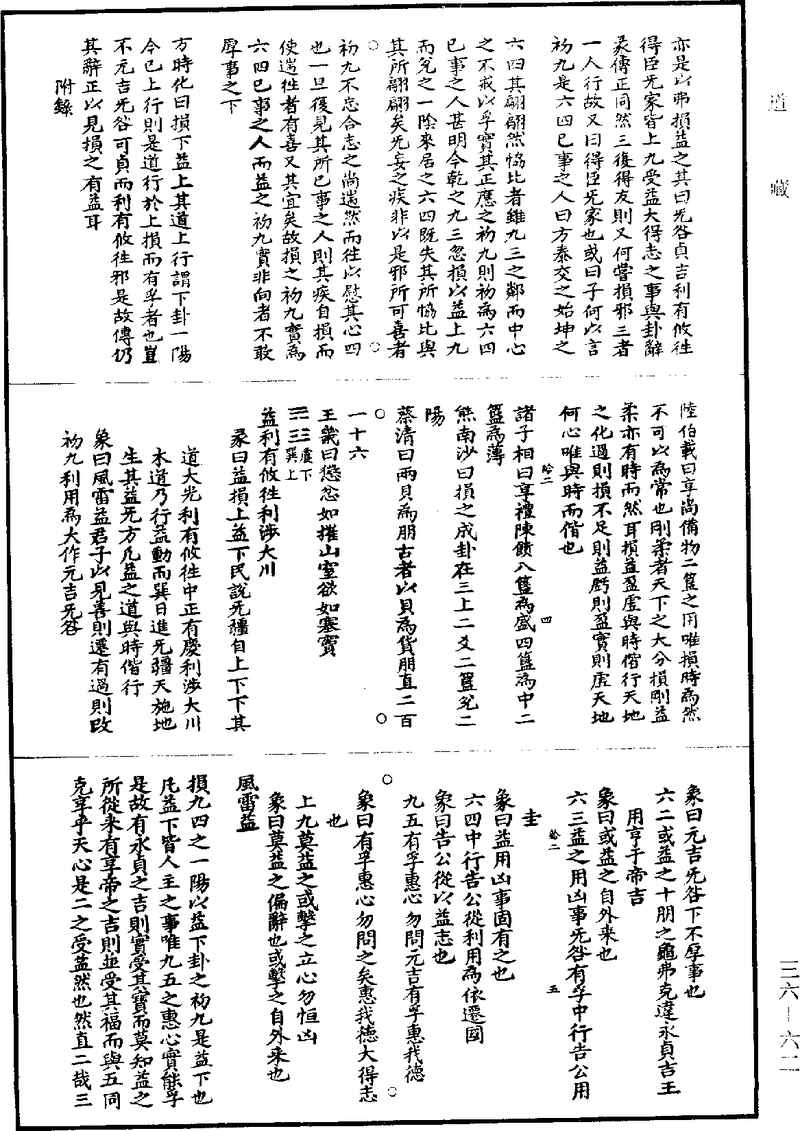 道藏
亦是以弗損益之其曰旡咎貞吉利有攸往
得臣旡家皆上九受益大得志之事與卦辭
彖傳正同然三復得友則又何嘗損邪三者
一人行故又曰得臣旡家也或曰子何以言
初九是六四巳事之人曰方泰交之始坤之
六四其翩翩然恊比者雖九三之鄰而中心
之不戒以孚實其正應之初九則初為六四
巳事之人甚明今乾之九三忽損以益上九
而兊之一陰來居之六四既失其所恊比與
其所翩翩矣旡妄之疾非以是邪所可喜者
初九不忘合志之尚遄然而往以慰其心四
也一旦復見其所巳事之人則其疾自損而
使遄往者有喜又其宜矣故損之初九實為
六四巳事之人而益之初九實非向者不敢
厚事之下
方時化曰損下益上其道上行謂下卦一陽
今巳上行則是道行於上損而有孚者也豈
不元吉旡咎可貞而利有攸往邪是故傳仍
其辭正以見損之有益耳
附錄
陸伯載曰享尚備物二簋之用唯損時為然
不可以為常也剛柔者天下之大分損剛益
柔亦有時而然耳損益盈虛與時偕行天地
之化過則損不足則益虧則盈實則虛天地
何心唯與時而偕也
諸子相曰享禮陳饋八簋為盛四簋為中二
簋為薄
熊南沙曰損之成卦在三上二爻二簋兊二
陽
蔡清曰兩貝為朋古者以貝為貨朋直二百
一十六
王畿曰懲忿如摧山窒欲如塞竇
䷩震下巽上
益利有攸往利涉大川
彖曰益損上益下民說旡疆自上下下其
道大光利有攸往中正有慶利涉大川
木道乃行益動而巽日進旡疆天施地
生其益旡方凡益之道與時偕行
象曰風雷益君子以見善則遷有過則改
初九利用為大作元吉旡咎
象曰元吉旡咎下不厚事也
六二或益之十朋之龜弗克違永貞吉王
用亨于帝吉
象曰或益之自外来也
六三益之用凶事旡咎有孚中行告公用
圭
象曰益用凶事固有之也
六四中行告公從利用為依遷國
象曰告公從以益志也
九五有孚惠心勿問元吉有孚惠我德
象曰有孚惠心勿問之矣惠我德大得志
也
上九莫益之或擊之立心勿恒凶
象曰莫益之偏辭也或擊之自外来也
風雷益
損九四之一陽以益下卦之初九是益下也
凡益下皆人主之事唯九五之惠心實能孚
是故有永貞之吉則實受其寶而莫知益之
所從来有享帝之吉則並受其福而與五同
克享乎天心是二之受益然也然直二哉三
三六-六二